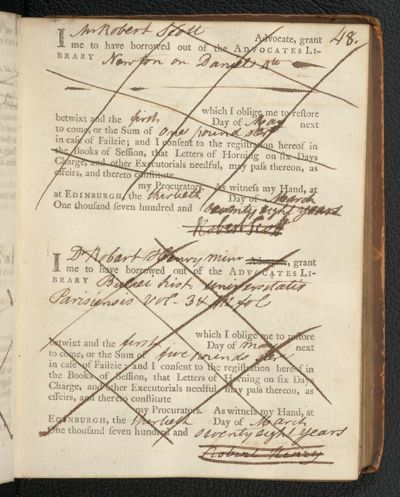 48.
I Mr Robert Scott Advocate, grant
me to have borrowed out of the ADVOCATES LI-
BRARY Newton on Daniel 4to
which I oblige me to reſtore
betwixt and the first Day of May next
to come, or the Sum of One pound ster
in caſe of Failzie; and I conſent to the regiſtration hereof in
the Books of Seſſion, that Letters of Horning on ſix Days
Charge, and other Executorials needful, may paſs thereon, as
effeirs, and thereto conſtitute
my Procurators. As witneſs my Hand, at
at EDINBURGH, the thirtieth Day of March
One thouſand ſeven hundred and seventy eight years
Robert Scott
I Dr Robert Henry minr Advocate, grant
me to have borrowed out of the ADVOCATES LI-
BRARY Bulaei hist. universitatis
Parisiensis Vol. 3 4 fol.
which I oblige me to reſtore
betwixt and the first Day of May next
to come, or the Sum of five pounds ster
in caſe of Failzie; and I conſent to the regiſtration hereof in
the Books of Seſſion, that Letters of Horning on ſix Days
Charge, and other Executorials needful may paſs thereon, as
effeirs, and thereto conſtitute
my Procurators. As witneſs my Hand, at
EDINBURGH, the thirtieth Day of March
One thouſand ſeven hundred and seventy eight years
Robert Henry